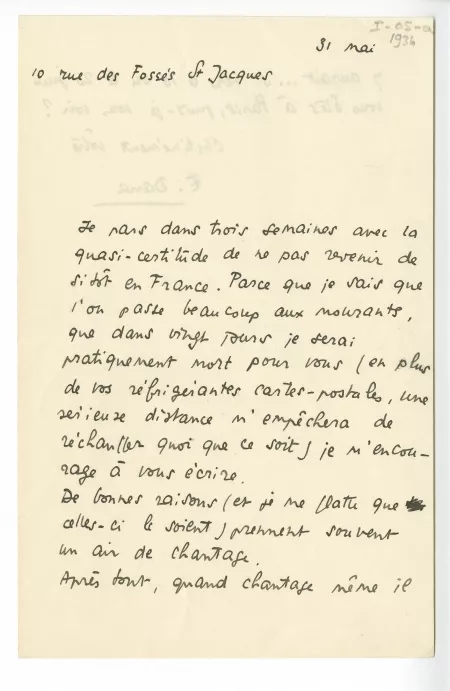 I-05-
1934
31 mai
10 rue des Fossés St Jacques
Je pars dans trois semaines avec la
quasi-certitude de ne pas revenir de
sitôt en France. Parce que je sais que
l'on passe beaucoup aux mourants,
que dans vingt jours je serai
pratiquement mort pour vous (en plus
de vos réfrigérantes cartes-postales, une
sérieuse distance m'empêchera de
réchauffer quoi que ce soit) je m'encou-
rage à vous écrire.
De bonnes raisons (et je me flatte que
celles-ci le soient) prennent souvent
un air de chantage.
Après tout, quand chantage même il